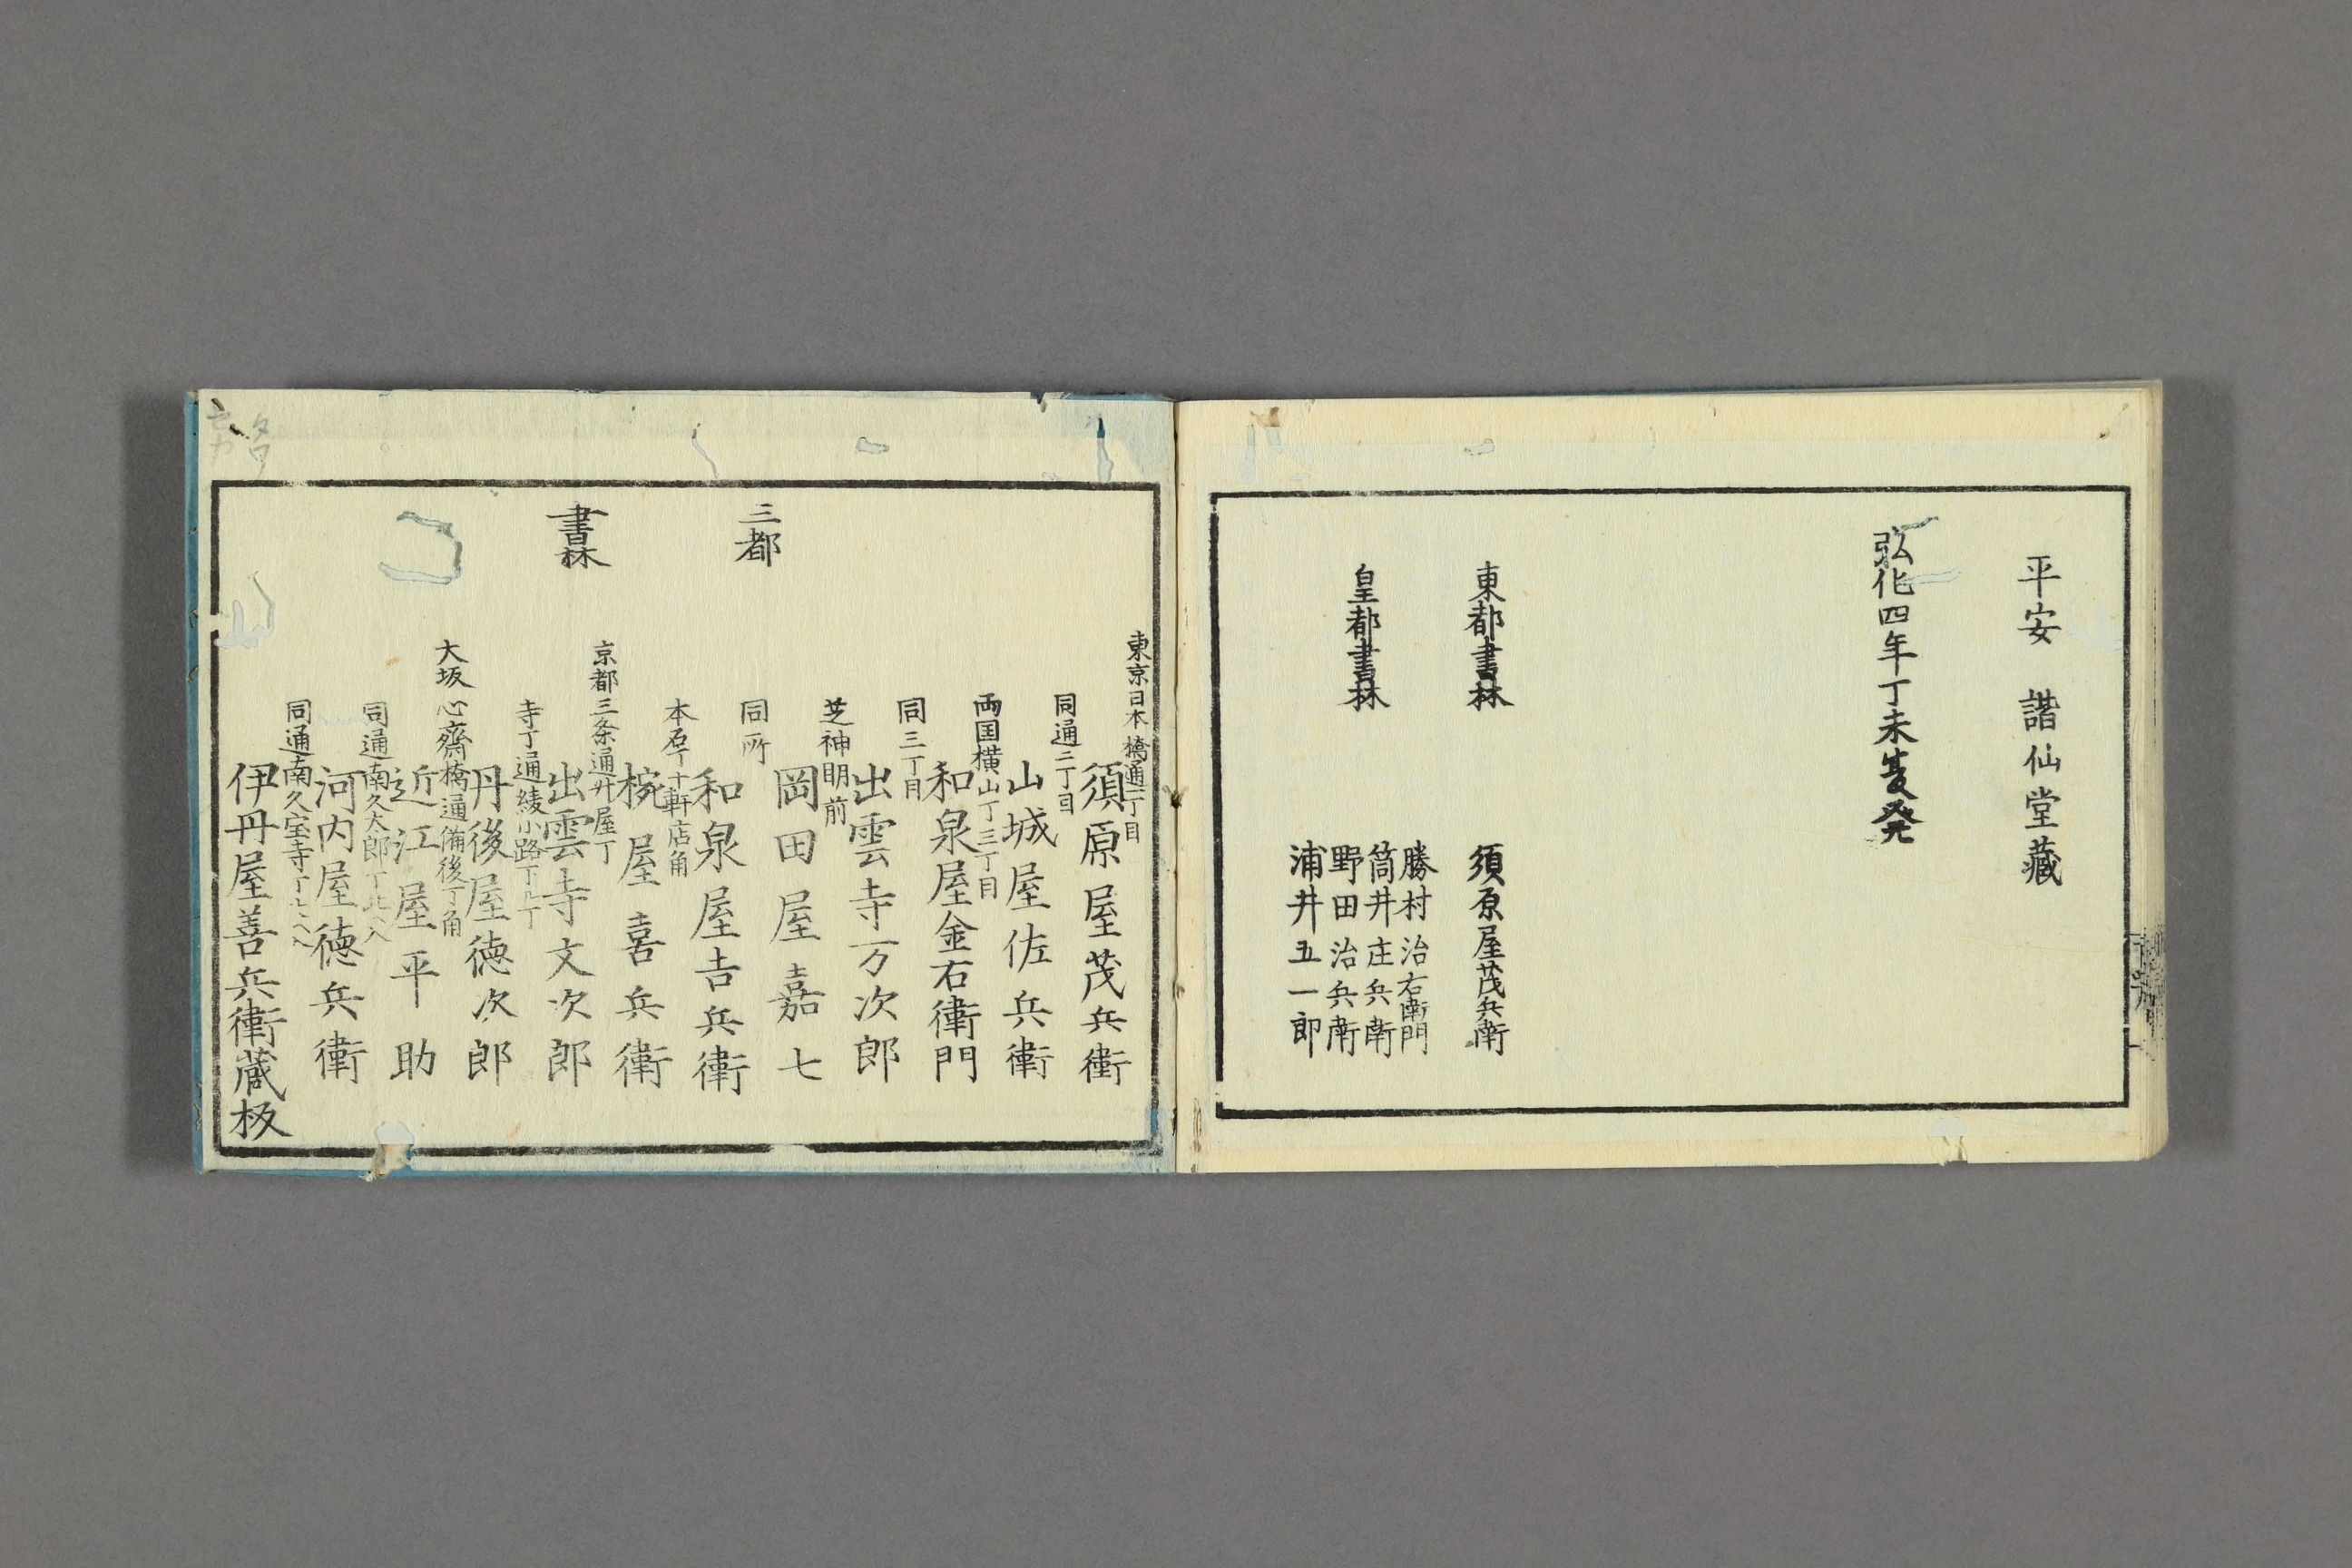 平安 諧仙堂藏
弘化四年丁未夏発
東都書林
須原屋茂兵衛
皇都書林
勝村治右衛門
筒井庄兵衛
野田治兵衛
浦井五一郎
三都
書林
東京日本橋通一丁目
須原屋茂兵衛
同通二丁目
山城屋佐兵衛
両国横山丁三丁目
和泉屋金右衛門
同三丁目
出雲寺万次郎
芝神明前
岡田屋嘉七
同所
和泉屋吉兵衛
本石丁十軒店角
椀屋喜兵衛
京都三条通升屋丁
出雲寺文次郎
寺丁通綾小路下
丹後屋徳次郎
大坂心齋橋通備後丁角
近江屋平助
同通南久太郎丁北入
河内屋徳兵衛
同通南久宝寺丁北入
伊丹屋善兵衛蔵板